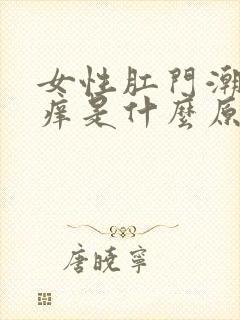 女性肛門潮
痒是什麼原
唐曉寧